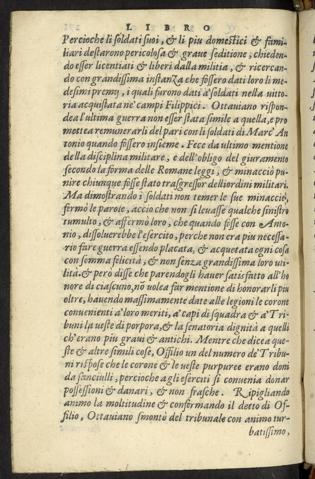 LIBRO
Percioche li soldati suoi, & li piu domestici & fami
liari destarono pericolosa & graue seditione, chieden-
do esser licentiati & liberi dalla militia, & ricercan-
do con grandissima instanza che fossero dati loro li me-
desimi premij, i quali furono dati a' soldati nella uitto-
ria acquistata ne' campi Filippici. Ottauiano rispon-
de a l'ultima guerra non esser stata simile a quella, e pro
mettea remunerarli del pari con li soldati di Marc' An
tonio quando fossero insieme. Fece da ultimo mentione
della disciplina militare, e dell'obligo del giuramento
secondo la forma delle Romane leggi, & minacciò pu-
nire chiunque fosse stato trasgressor delli ordini militari.
Ma dimostrando i soldati non temer le sue minaccie,
firmò le parole, accio che non si leuasse qualche sinistro
tumulto, & affermò loro, che quando fosse con Anto-
nio, dissoluerebbe l'esercito, perche non era piu necessa-
rio fare guerra essendo placata, & acquetata ogni cosa
con somma felicità, & non senza grandissima loro uti-
lità. & però disse che parendogli hauer satisfatto all'ho
nore di ciascuno, nō uolea far mentione di honorarli piu
oltre, hauendo massimamente date alle legioni le corone
conuenienti a' loro meriti, a' capi di squadra & a' Tri-
buni la ueste di porpora, & la senatoria dignità a quelli
ch'erano piu graui & antichi. Mentre che dice a que-
ste & altre simili cose, Offilio un del numero de' Tribu-
ni rispose che le corone & le ueste purpuree erano doni
da fanciulli, percioche a gli eserciti si conuenia donar
possessioni & danari, & non frasche. Ripigliando
animo la moltitudine & confermando il detto di Of-
filio, Ottauiano smontò del tribunale con animo tur-
batissimo,